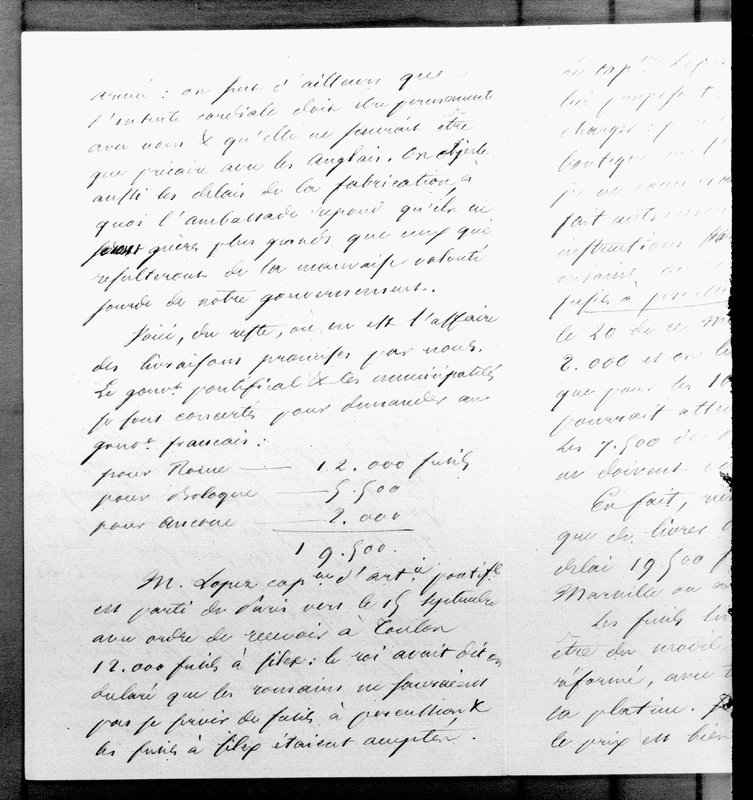 armée : on sent d'ailleurs que
l'entente cordiale doit être permanente
avec nous & qu'elle ne saurait être
que précaire avec les Anglais. On objecte
aussi les délais de la fabrication, à
quoi l'ambassade répond qu'ils ne
seront guères plus grands que ceux qui
resulteront de la mauvaise volonté
sourde de notre gouvernement.
Voici, du reste, où en est l'affaire
des livraisons promises par nous.
Le gouvt. pontifical & les municipalités
se sont concertés pour demander au
gouvt. français :
pour Rome — 12.000 fusils
pour Bologne — 5.500
pour Ancone — 2.000
19.500.
M. Lopez capne d'artie pontifle
est parti de Paris vers le 15 septembre
avec ordre de recevoir à Toulon
12.000 fusils à silex : le roi avait dit en
déclaré que les romains ne sauraient
pas se servir de fusils à percussion &
les fusils à silex étaient acceptés.
du capne Lopez
lui propose
changer :
boutique
je ne
fait
instructions
fusils à
le 20 de ce
2.000 et en
que pour les
pourrait
Les 7.500 de
ne doivent
En fait,
que de livrer
délai 19500
Marseille ou
Les fusils
être du modèle
réformé, avec
la platine.
le prix est bien